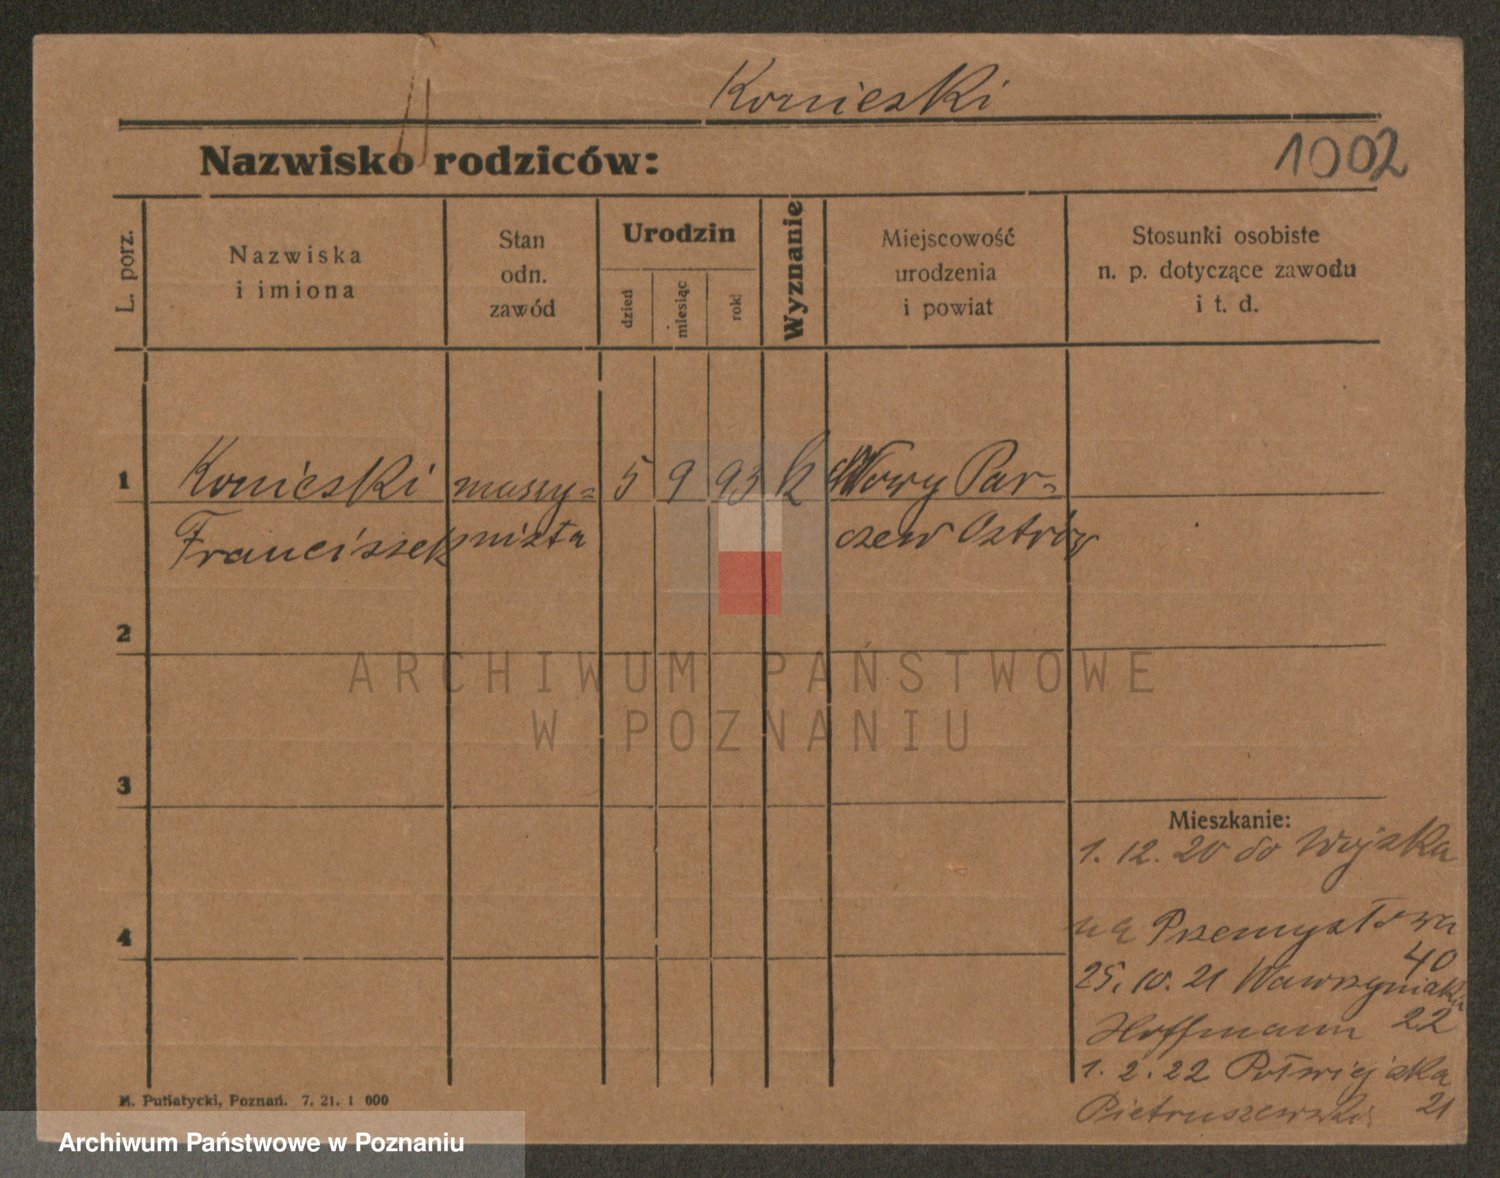 Konieski
Nazwisko rodziców:
1002
L. porz.
Nazwiska
i imiona
Stan
odn.
zawód
Urodzin
dzień
miesiąc
rok
Wyznanie
Miejscowość
urodzenia
i powiat
Stosunki osobiste
n. p. dotyczące zawodu
i t. d.
1
Konieski maszy= 5 9 93 k Nowy Par=
Franciszek nista czew Ostrów
2
ARCHIWUM PAŃSTWOWE
W POZNANIU
3
Mieszkanie:
1. 12. 20 do Wojska
na Przemysłowa
4
40
25. 10. 21 Wawrzyniaka
Hoffmann 22
1. 2. 22 Półwiejska
Pietruszewski 21
M. Putiatycki, Poznań. 7. 21. 1 000
Archiwum Państwowe w Poznaniu